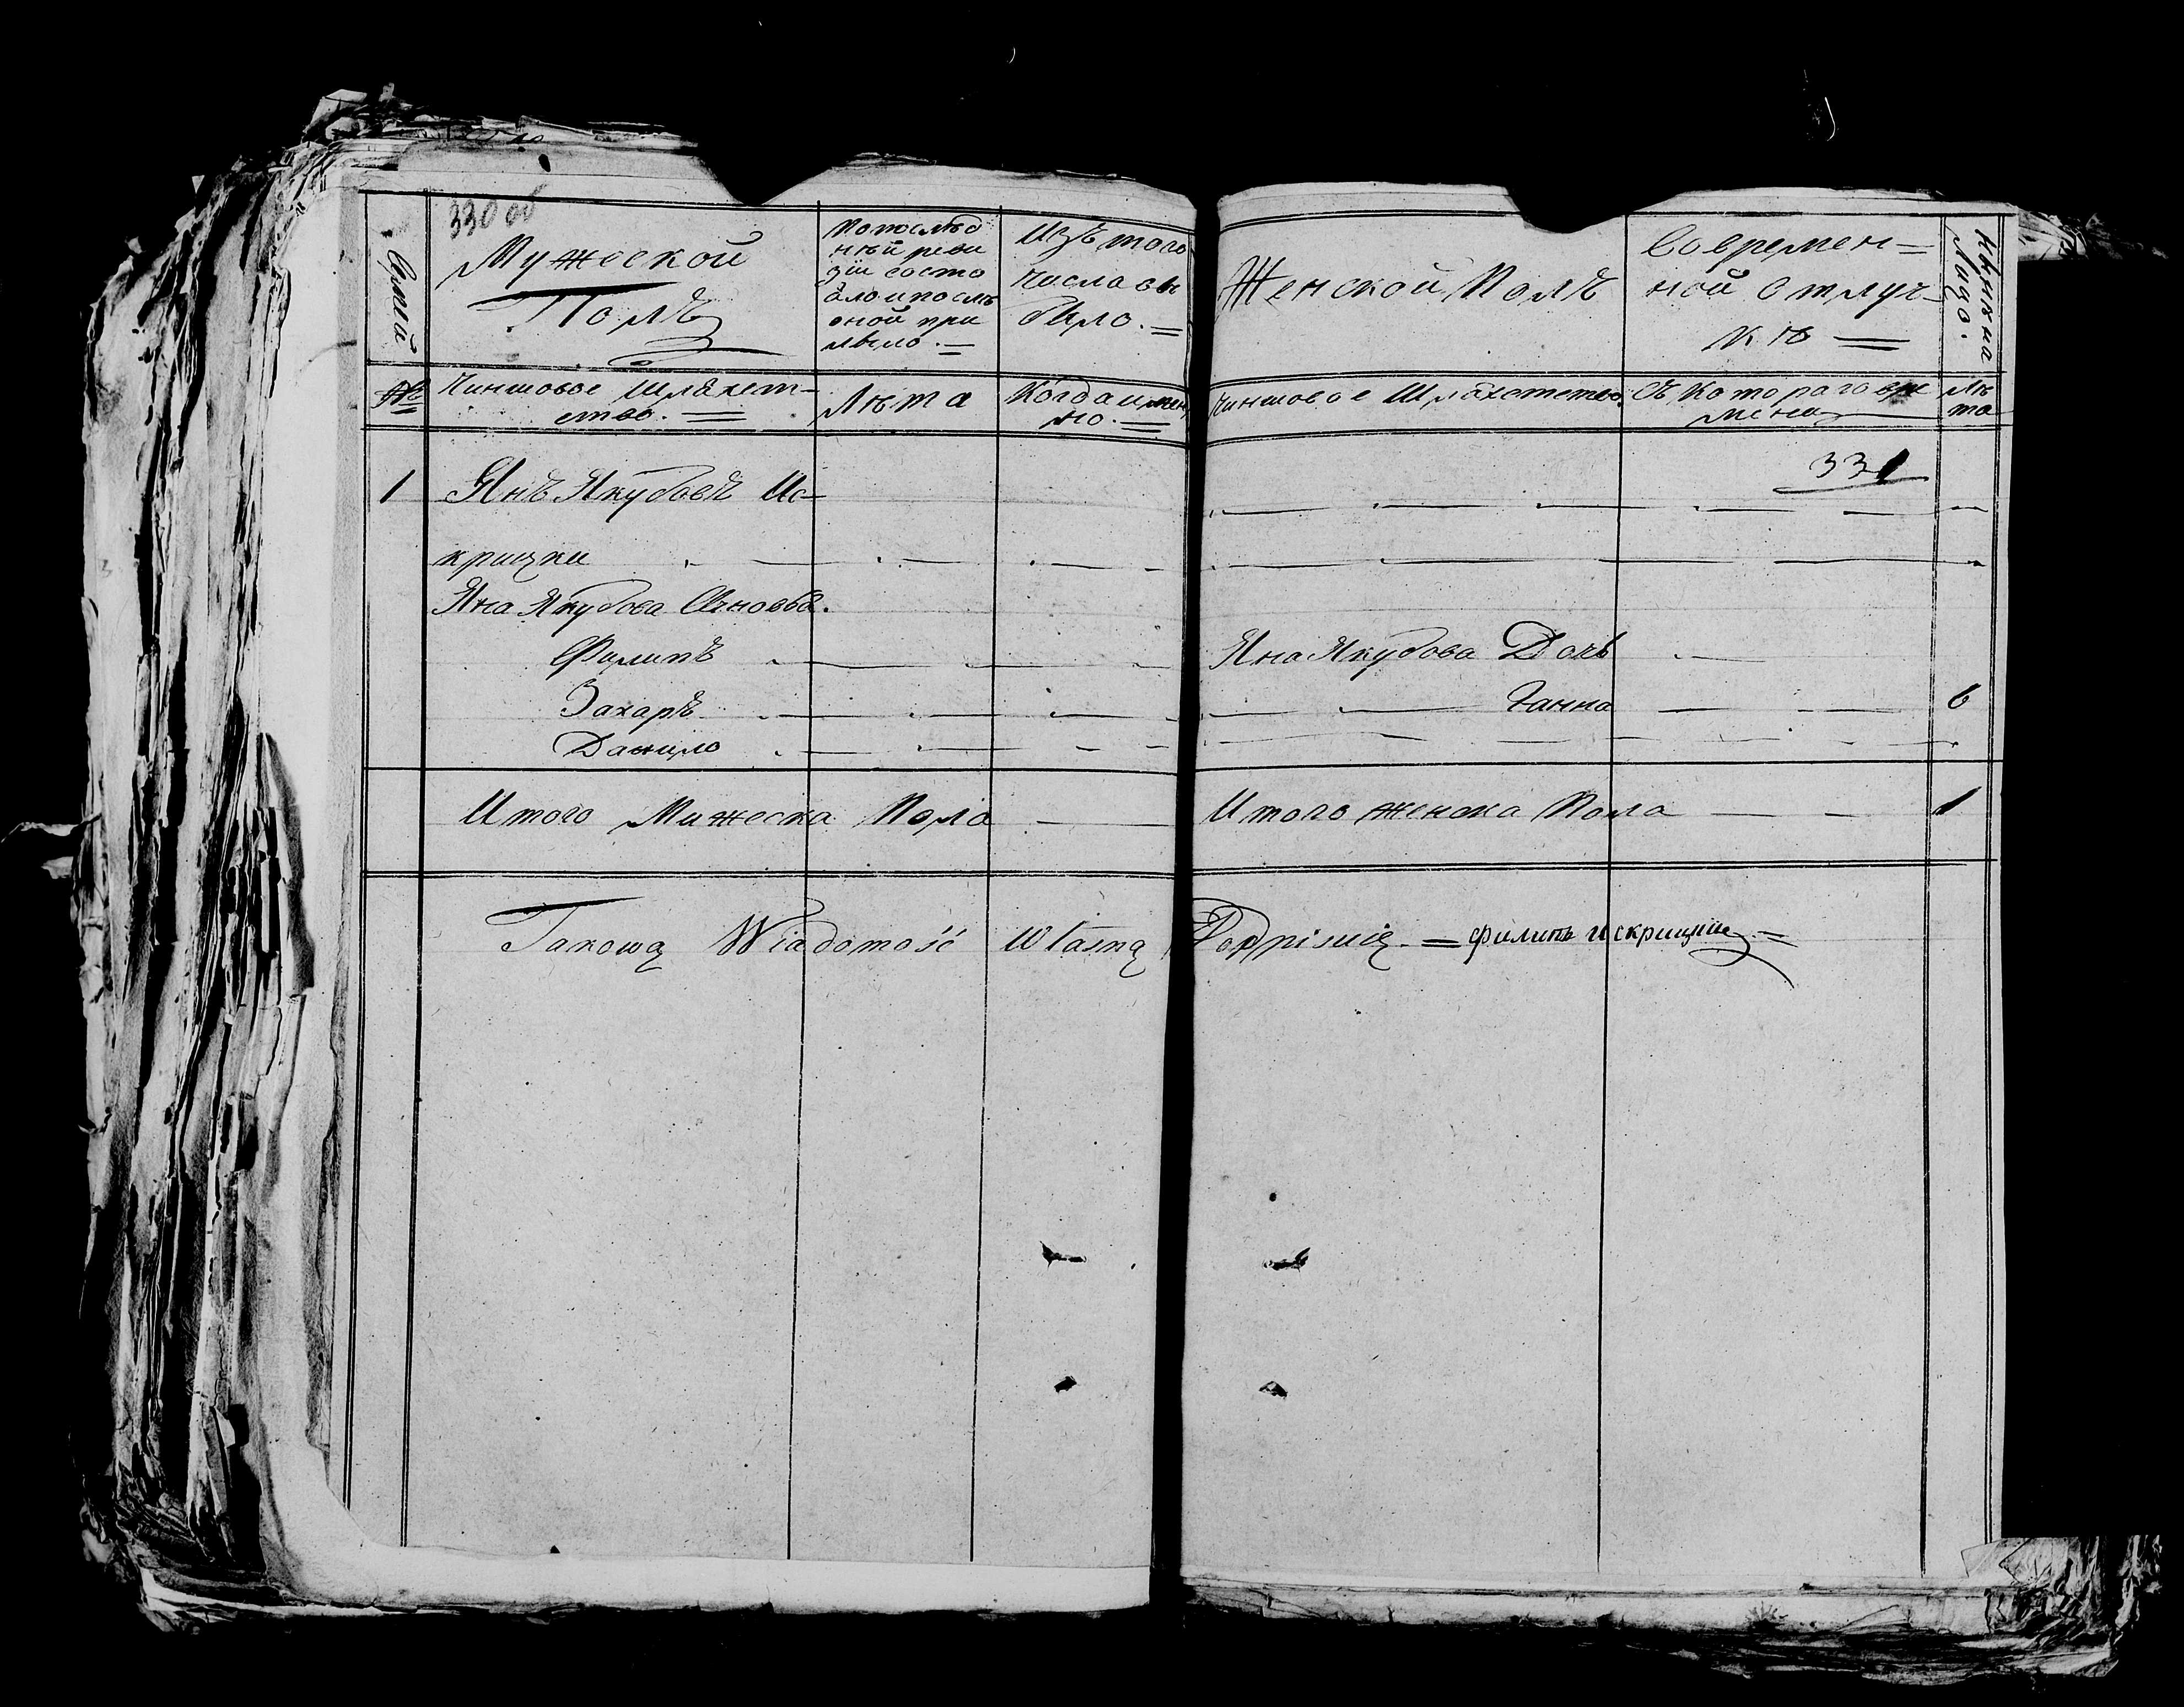 330 об
Семей
Мужеской
Полъ
Попослѣд
нѣй реви
зіи состо
яло и послѣ
оной при
было
Изъ того
числа вы
было
Женской Полъ
Во времен=
ной отлуч-
кѣ
Нынѣ на
Лицо.
№
Чиншовое Шляхет-
ство.
Лѣта
Когда имен
но.
Чиншовое Шляхетство
Съ Котораго вре
мени
Лѣ
та
331
1 Янъ Якубовъ Ис-
крицки
Яна Якубова Сыновья.
Филипъ
Яна Якубова Дочь
Захаръ
Ганна 6
Данило
Итого Мужеска Пола
Итого женска Пола 1
Takową Wiadomość własną Podpisuię = филипъ искрицкiй =